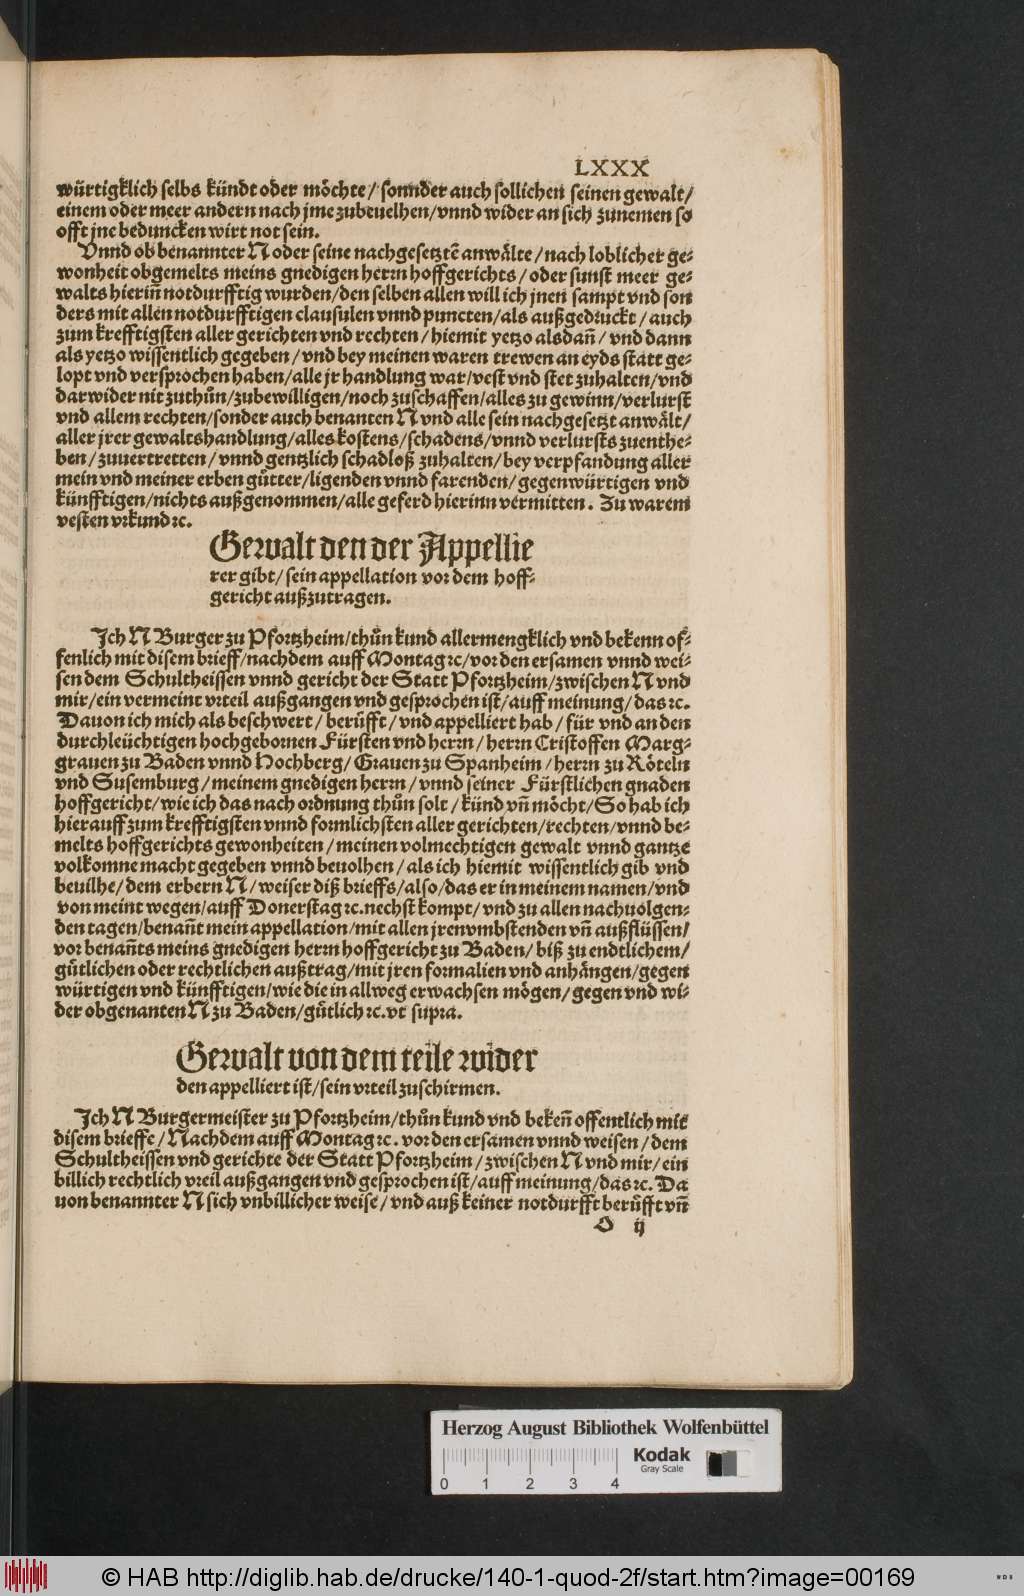 LXXX
würtigklich selbs kündt oder möchte/ sonnder auch sollichen seinen gewalt/
einem oder meer andern nach jme zubeuelhen/vnnd wider an sich zunemen so
offt jne beduncken wirt not sein.
Vnnd ob benannter N oder seine nachgesetztē anwälte/nach loblicher ge⸗
wonheit obgemelts meins gnedigen herrn hoffgerichts/oder sunst meer ge⸗
walts hierin̄ notdurfftig wurden/den selben allen will ich jnen sampt vnd son
ders mit allen notdurfftigen clausulen vnnd puncten/als außgedruckt/auch
zum krefftigsten aller gerichten vnd rechten/hiemit yetzo alsdan̄/vnd dann
als yetzo wissentlich gegeben/vnd bey meinen waren trewen an eyds statt ge⸗
lopt vnd versprochen haben/alle jr handlung war/vest vnd stet zuhalten/vnd
darwider nit zuthůn/zubewilligen/noch zuschaffen/alles zu gewinn/verlurst
vnd allem rechten/sonder auch benanten N vnd alle sein nachgesetzt anwält/
aller jrer gewaltshandlung/alles kostens/schadens/vnnd verlursts zuenthe⸗
ben/zuuertretten/vnnd gentzlich schadloß zuhalten/bey verpfandung aller
mein vnd meiner erben gütter/ligenden vnnd farenden/gegenwürtigen vnd
künfftigen/nichts außgenommen/alle geferd hierinn vermitten. Zu warem
vesten vrkund ꝛc.
Gewalt den der Appellie
rer gibt/sein appellation vor dem hoff⸗
gericht außzutragen.
Ich N Burger zu Pfortzheim/thůn kund allermengklich vnd bekenn of⸗
fenlich mit disem brieff/nachdem auff Montag ꝛc/vor den ersamen vnnd wei⸗
sen dem Schultheissen vnnd gericht der Statt Pfortzheim/zwischen N vnd
mir/ein vermeint vrteil außgangen vnd gesprochen ist/auff meinung/das ꝛc.
Dauon ich mich als beschwert/berüfft/vnd appelliert hab/für vnd an den
durchleüchtigen hochgebornen Fürsten vnd herrn/herrn Cristoffen Marg⸗
grauen zu Baden vnnd Hochberg/Grauen zu Spanheim/herrn zu Röteln
vnd Susemburg/meinem gnedigen herrn/vnnd seiner Fürstlichen gnaden
hoffgericht/wie ich das nach ordnung thůn solt/künd vn̄ möcht/So hab ich
hierauff zum krefftigsten vnnd formlichsten aller gerichten/rechten/vnnd be⸗
melts hoffgerichts gewonheiten/meinen volmechtigen gewalt vnnd gantze
volkomne macht gegeben vnnd beuolhen/als ich hiemit wissentlich gib vnd
beuilhe/dem erbern N/weiser diß brieffs/also/das er in meinem namen/vnd
von meint wegen/auff Donerstag ꝛc.nechst kompt/vnd zu allen nachuolgen⸗
den tagen/benan̄t mein appellation/mit allen jren vmbstenden vn̄ außflüssen/
vor benan̄ts meins gnedigen herrn hoffgericht zu Baden/biß zu endtlichem/
gütlichen oder rechtlichen außtrag/mit jren formalien vnd anhängen/gegen
würtigen vnd künfftigen/wie die in allweg erwachsen mögen/gegen vnd wi⸗
der obgenanten N zu Baden/gütlich ꝛc.vt supra.
Gewalt von dem teile wider
den appelliert ist/sein vrteil zuschirmen.
Ich N Burgermeister zu Pfortzheim/thůn kund vnd beken̄ offentlich mit
disem brieffe/Nachdem auff Montag ꝛc. vor den ersamen vnnd weisen/dem
Schultheissen vnd gerichte der Statt Pfortzheim/zwischen N vnd mir/ein
billich rechtlich vreil außgangen vnd gesprochen ist/auff meinung/das ꝛc. Da
uon benannter N sich vnbillicher weise/vnd auß keiner notdurfft berüfft vn̄
O ij
Herzog August Bibliothek Wolfenbüttel
Kodak
Gray Scale
0 1 2 3 4
© HAB http://diglib.hab.de/drucke/140-1-quod-2f/start.htm?image=00169